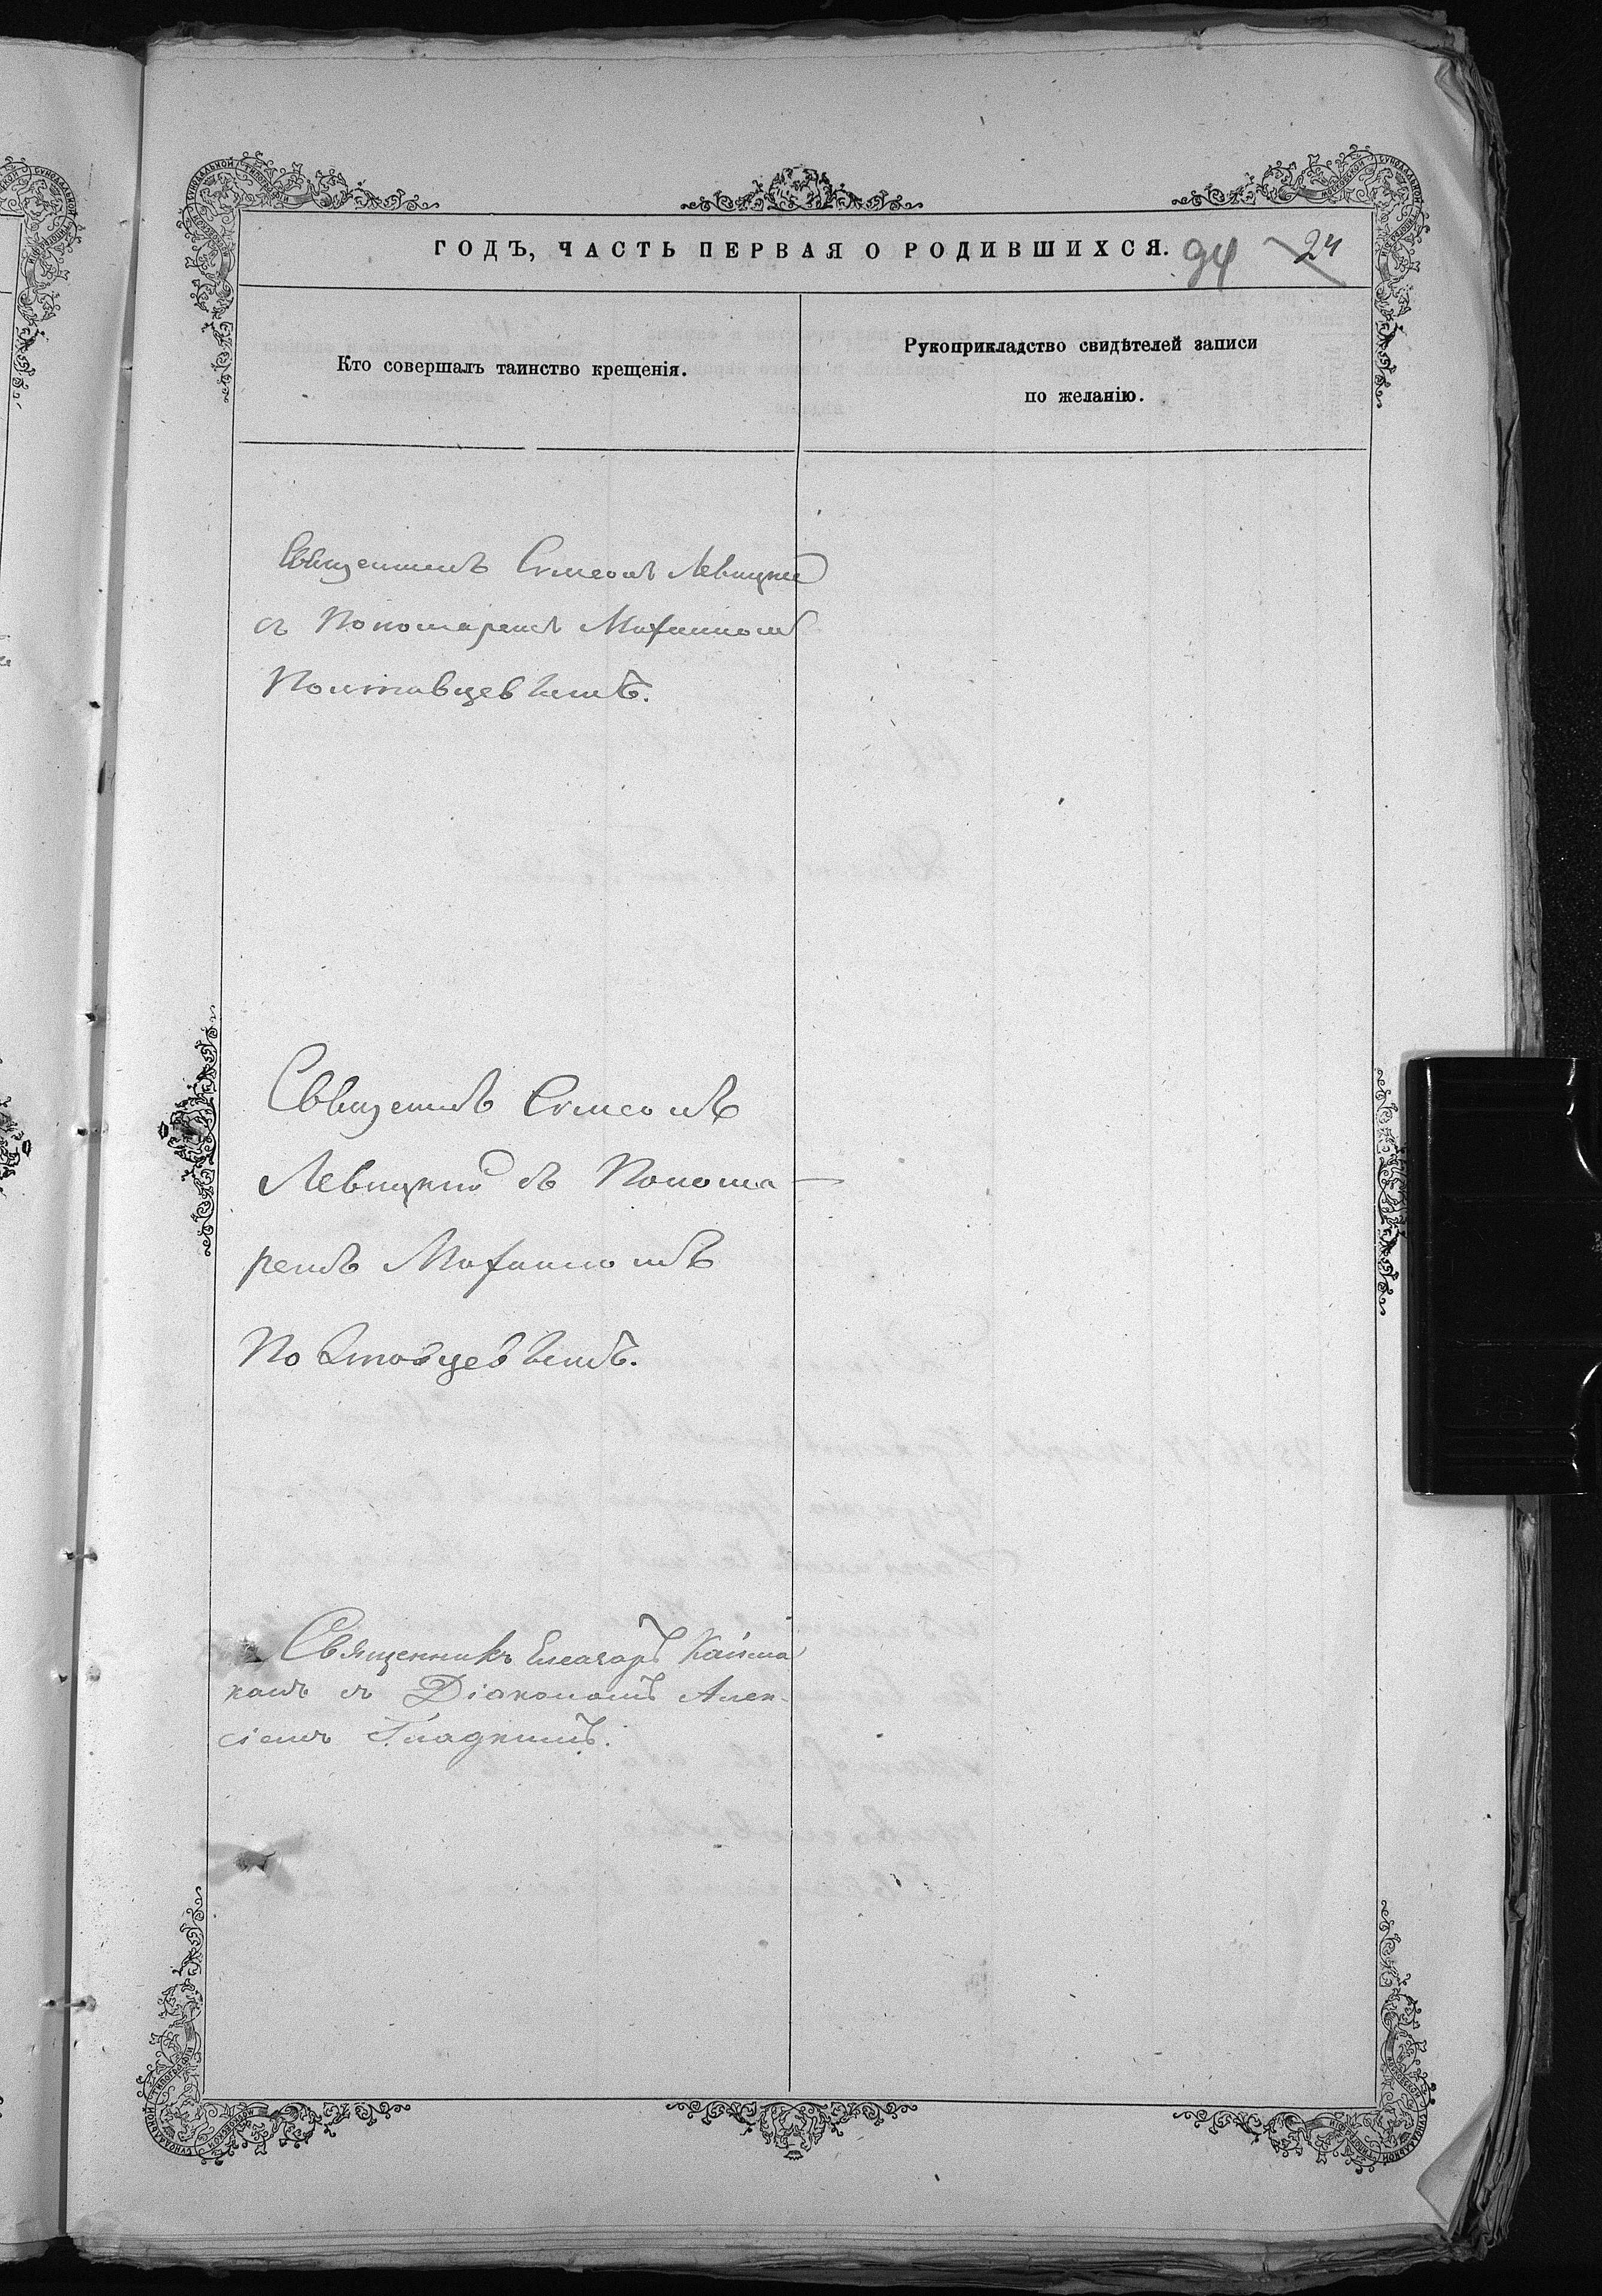 ГОДЪ, ЧАСТЬ ПЕРВАЯ О РОДИВШИХСЯ. 94 24
Кто совершалъ таинство крещенія.
Рукоприкладство свидѣтелей записи
по желанію.
Священникъ Симеонъ Левицкій
съ Пономаремъ
Полтавцевымъ.
Священникъ Симеонъ
Левицкій съ Понома-
ремъ
Полтавцевымъ.
Священникъ Елеазаръ Кайма
камъ съ Діакономъ Алек-
сіемъ Гладкимъ.